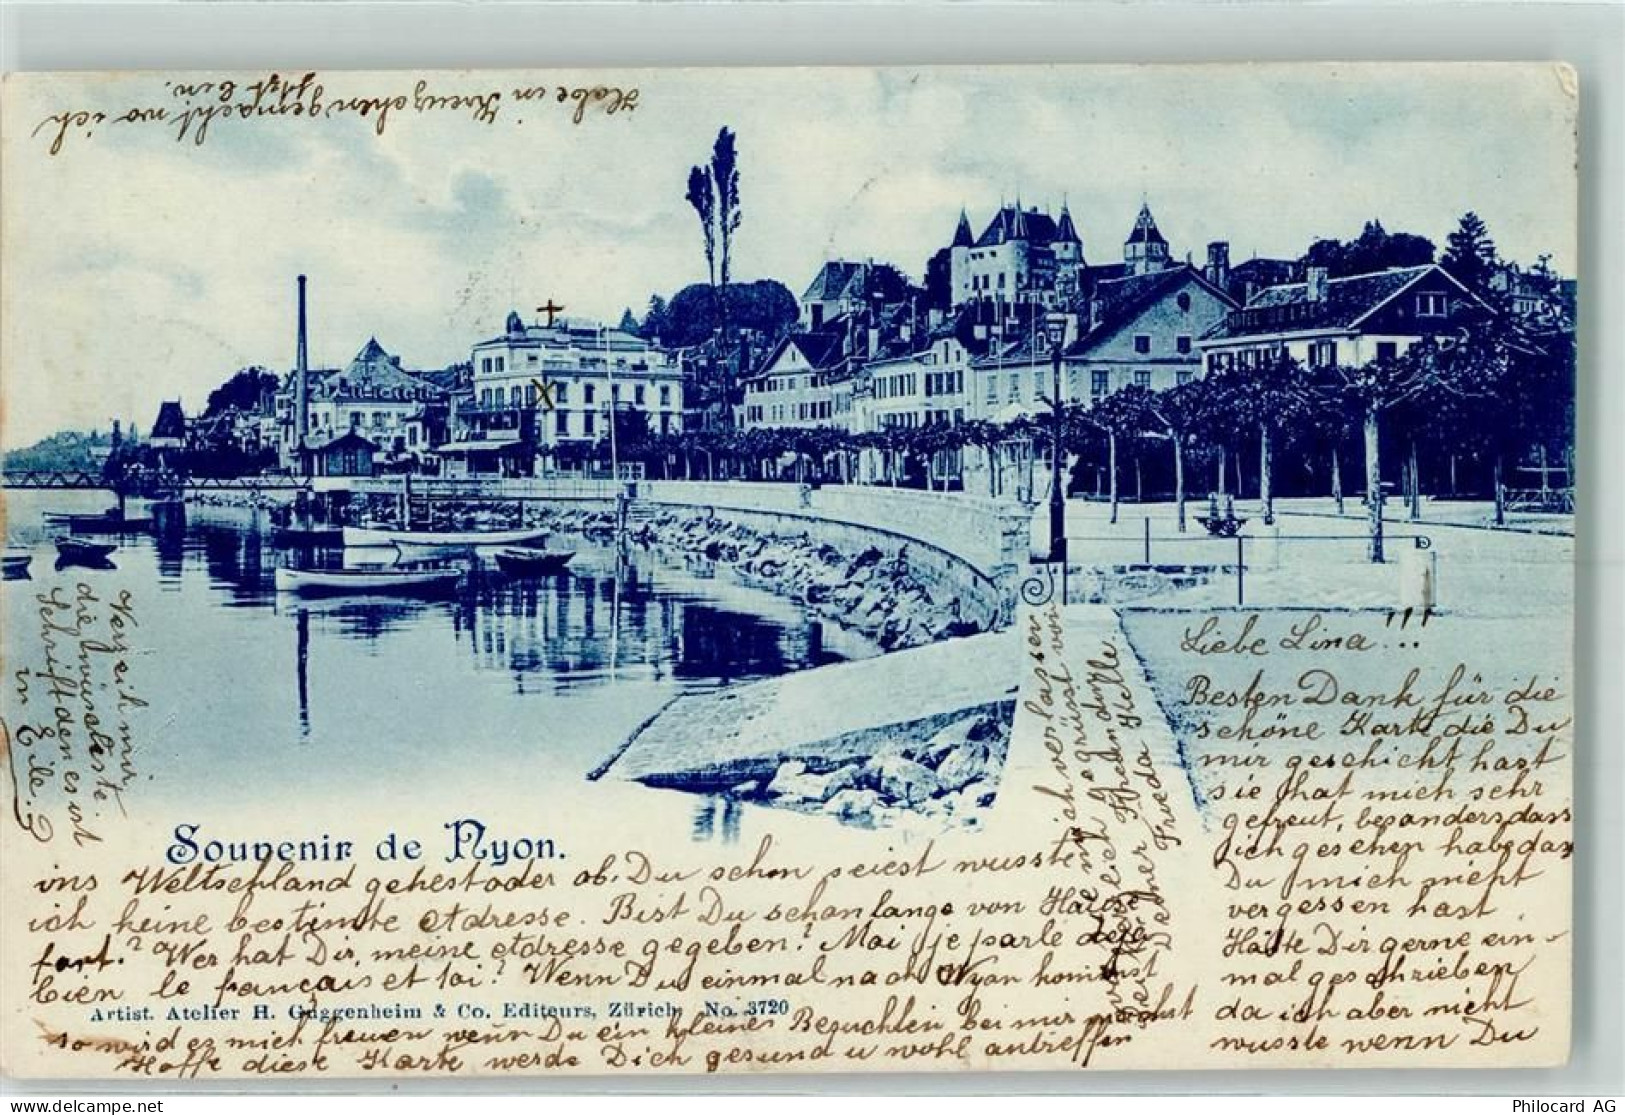 Habe ein Kreuzchen gemacht, wo ich
jetzt bin.
Liebe Lina!!!
Besten Dank für die
schöne Karte die Du
mir geschickt hast
sie hat mich sehr
gefreut, besonders dass
ich gesehen habe dass
Du mich nicht
vergessen hast.
Hätte Dir gerne ein-
mal geschrieben
da ich aber nicht
wusste wenn Du
Souvenir de Nyon.
ins Weltschland gehest oder ob Du schon seiest wusste
ich keine bestimte Adresse. Bist Du schon lange von Hause
fort? Wer hat Dir meine Adresse gegeben? Moi je parle déjà
bien le français et toi? Wenn Du einmal nach Nyon kommst
Artist. Atelier H. Guggenheim & Co. Editeurs, Zürich. No. 3720
so wird es mich freuen wenn Du ein kleines Besuchlein bei mir machst
Hoffe diese Karte werde Dich gesund u wohl antreffen
ich verlassen
gegrüsst von
Deiner Freundin
Frieda
Verzeih mir
die wüsteste
Schrift den es ist
in Eile.
Philocard AG